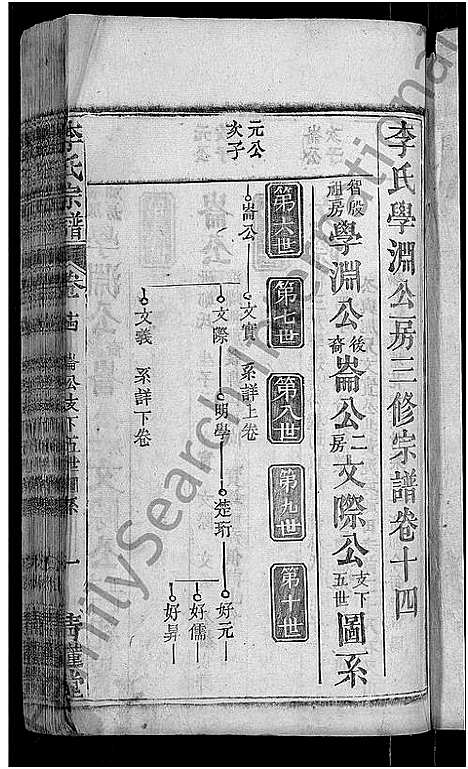 李氏學淵公房三修宗譜卷十四
智殿祖房學淵公後裔崙公二房文際公支下五世圖系
第六世
第七世
第八世
第九世
第十世
元公次子
崙公
文實 系詳上卷
文際
明學
楚珩
好元
好儒
好昇
文義 系詳下卷
李氏宗譜
卷十四 崙公支下五世圖系
一
FamilySearch International